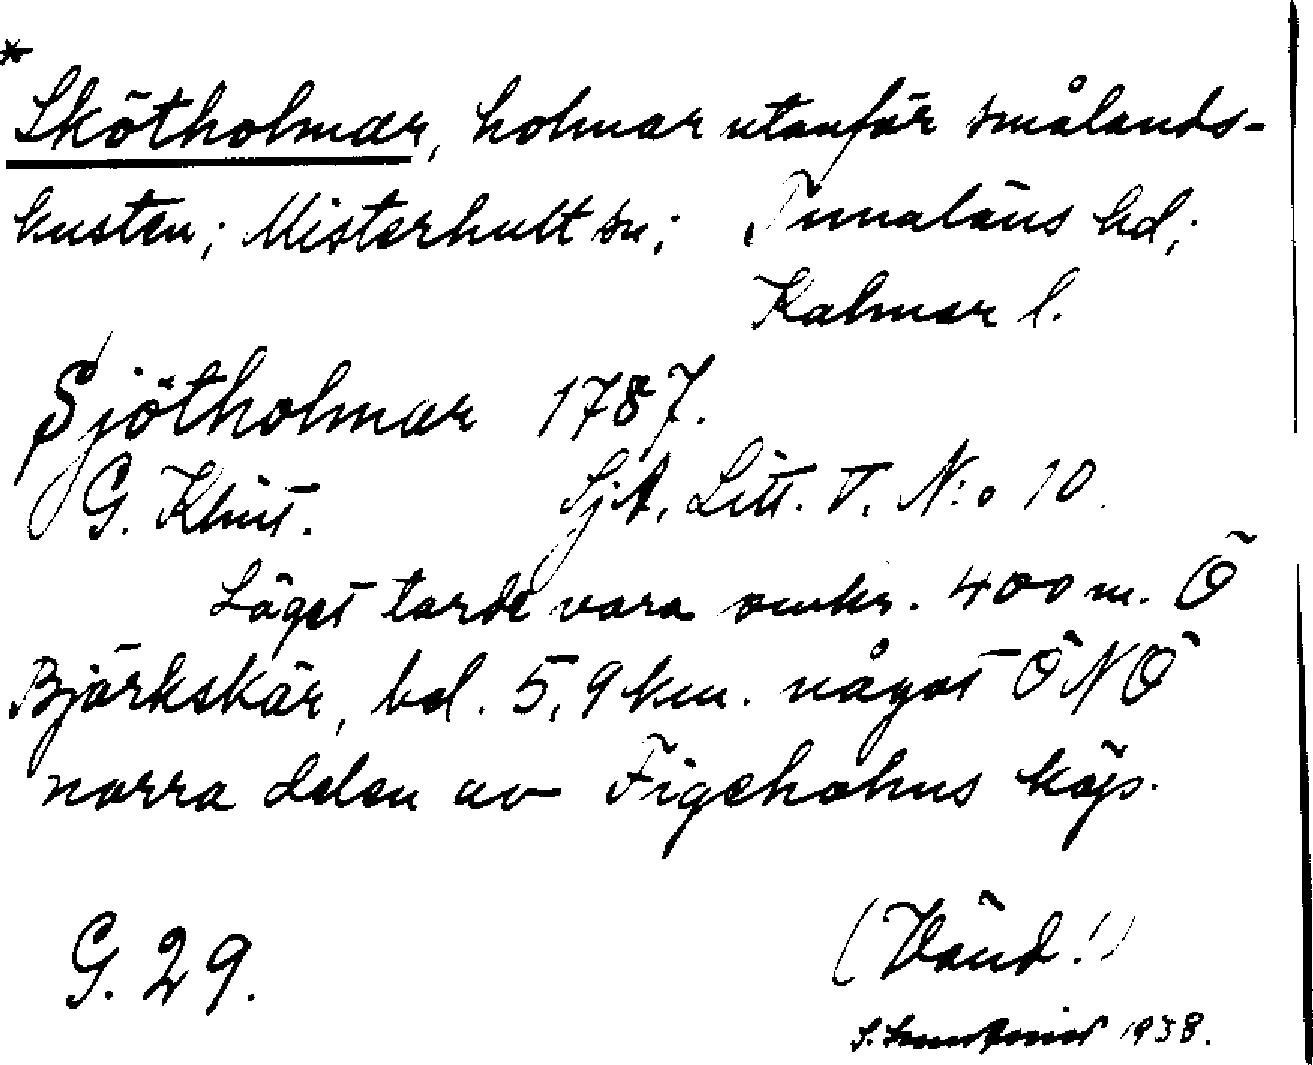 *
Skötholmar, holmar utanför smålands-
kusten; Misterhult sn; Tunaläns hd;
Kalmar l.
Sjötholmar 1787.
G. Klint. SjA, Litt. V. N:o 10.
Läget torde vara omkr. 400 m. Ö
Björkskär, bel. 5,9 km. något ÖNÖ
norra delen av Figeholms köp.
G. 29.
(Vänd!)
S. 1938.